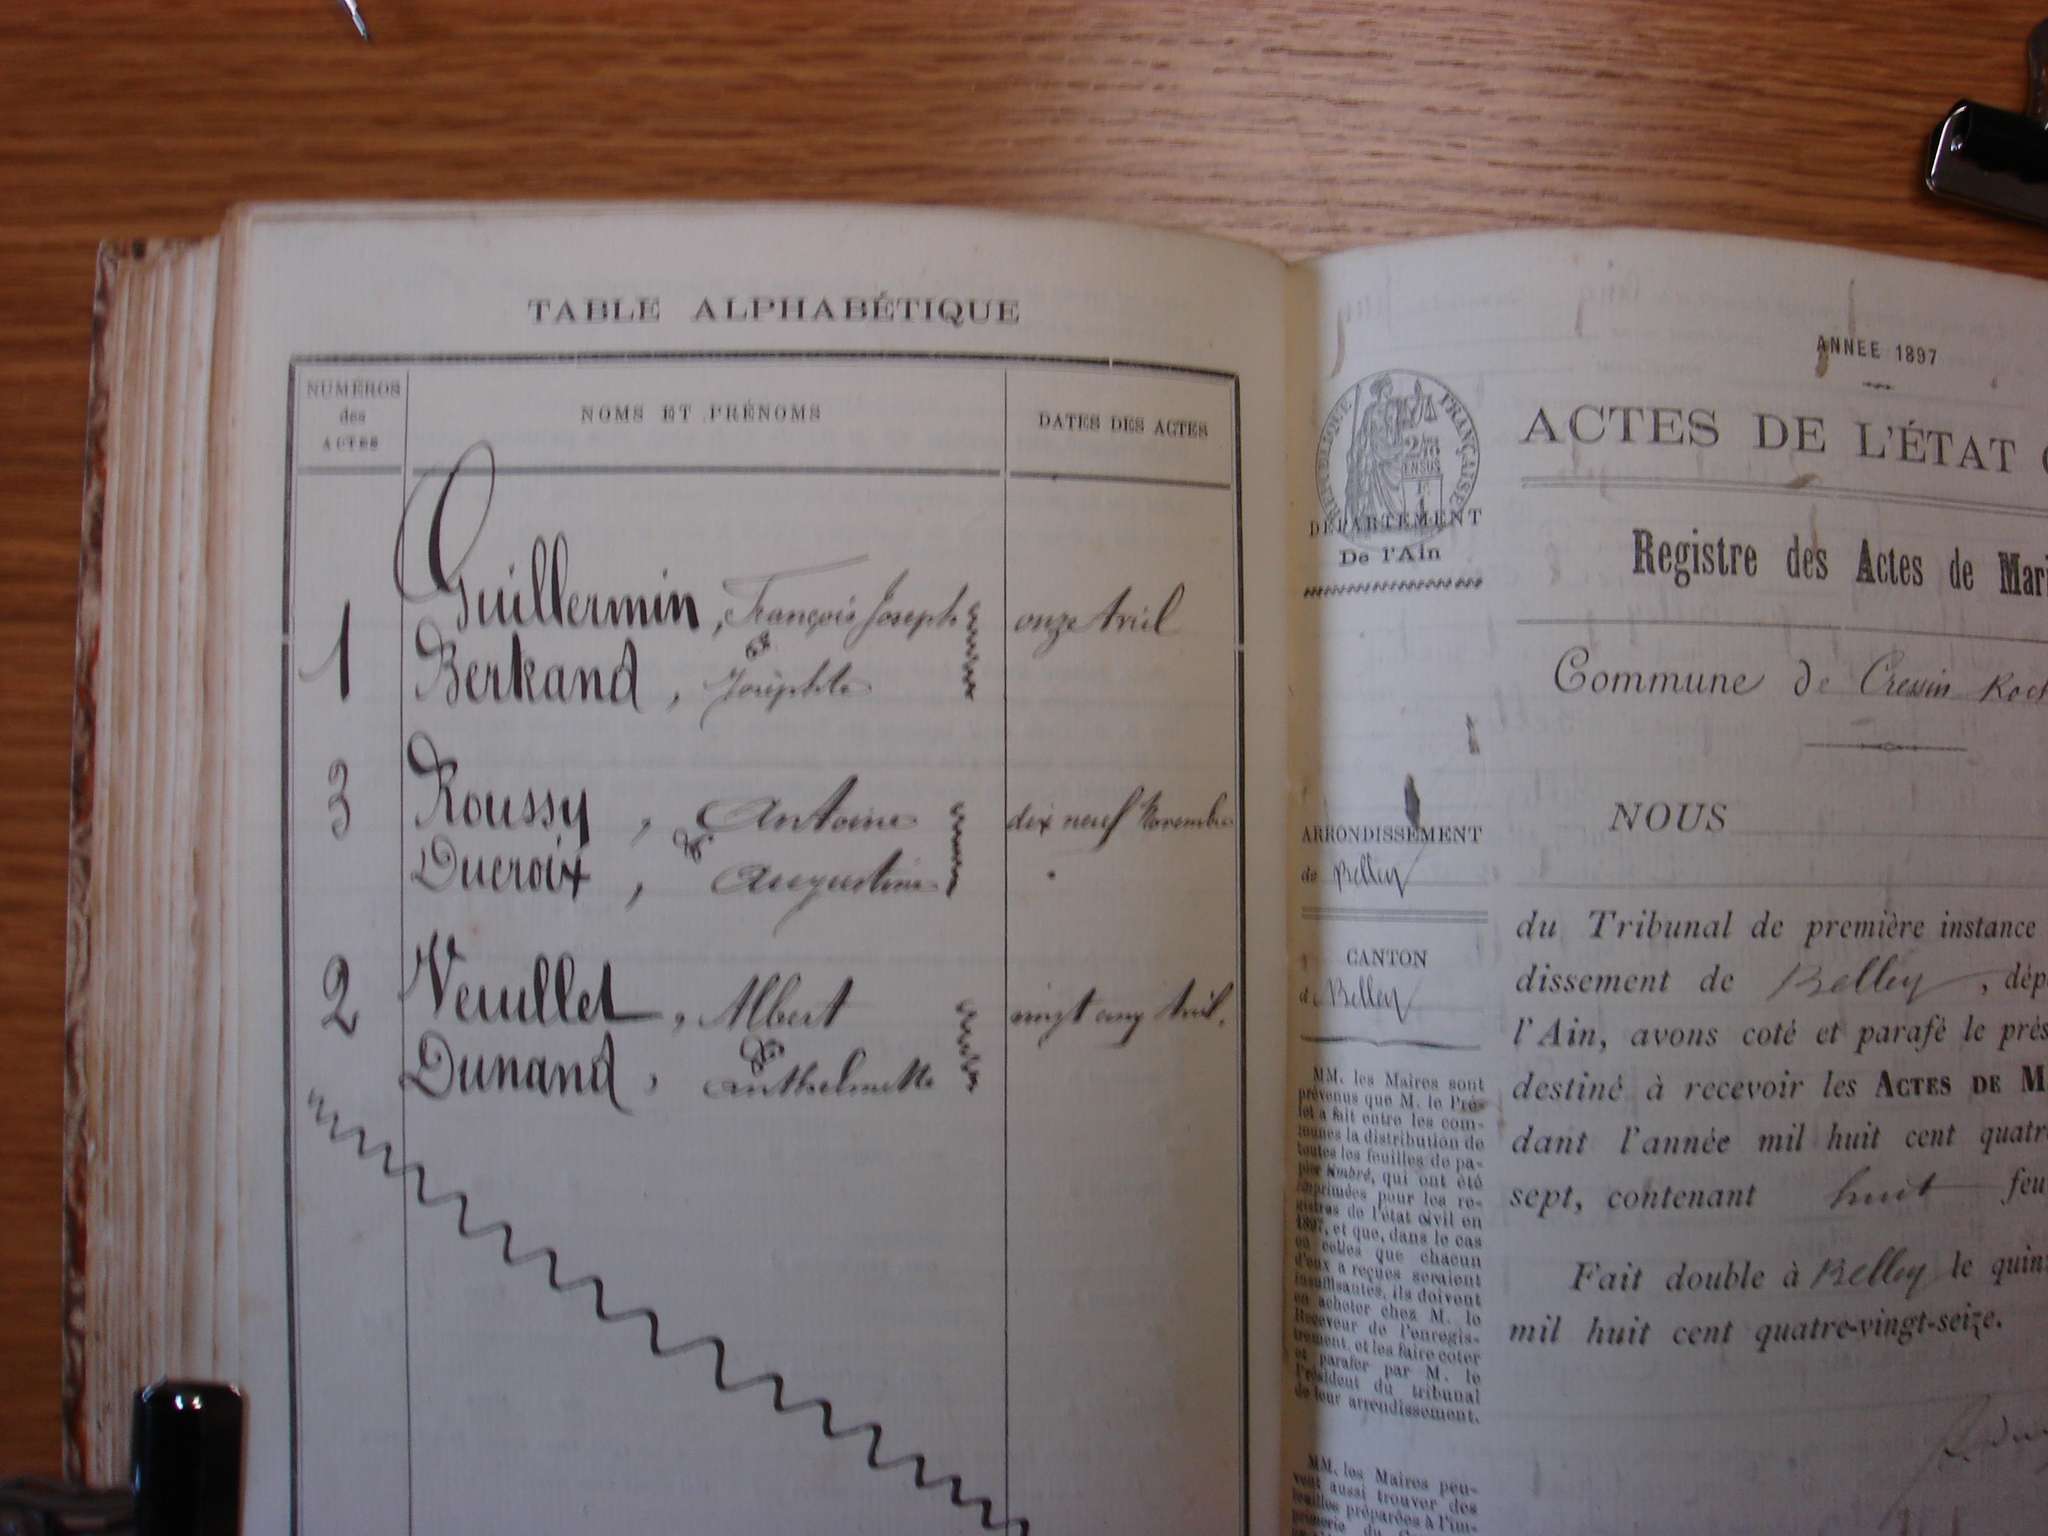 TABLE ALPHABÉTIQUE
NUMÉROS
des
ACTES
NOMS ET PRÉNOMS
DATES DES ACTES
1
Guillermin, François Joseph onze Avril
&
Bertrand, Josephte
3
Roussy, Antoine dix neuf Novembre
&
Ducroix, Augustine
2
Veuillet, Albert vingt cinq Avril.
&
Dunand, Anthelmette
ANNÉE 1897
RÉPUBLIQUE FRANÇAISE
DÉPARTEMENT
De l'Ain
ARRONDISSEMENT
de Belley
CANTON
d Belley
MM. les Maires sont
prévenus que M. le Pré-
fet a fait entre les com-
munes la distribution de
toutes les feuilles de pa-
pier timbré, qui ont été
imprimées pour les re-
gistres de l'état civil en
1897, et que, dans le cas
où celles que chacun
d'eux a reçues seraient
insuffisantes, ils doivent
en acheter chez M. le
Receveur de l'enregis-
trement, et les faire coter
et parafer par M. le
Président du tribunal
de leur arrondissement.
MM. les Maires peu-
vent aussi trouver des
feuilles préparées à l'im-
primerie du
ACTES DE L'ÉTAT C
Registre des Actes de Mari
Commune de Cressin Roch
NOUS
du Tribunal de première instance
dissement de Belley, dép
l'Ain, avons coté et parafé le prés
destiné à recevoir les ACTES DE M
dant l'année mil huit cent quatr
sept, contenant huit feu
Fait double à Belley le quin
mil huit cent quatre-vingt-seize.